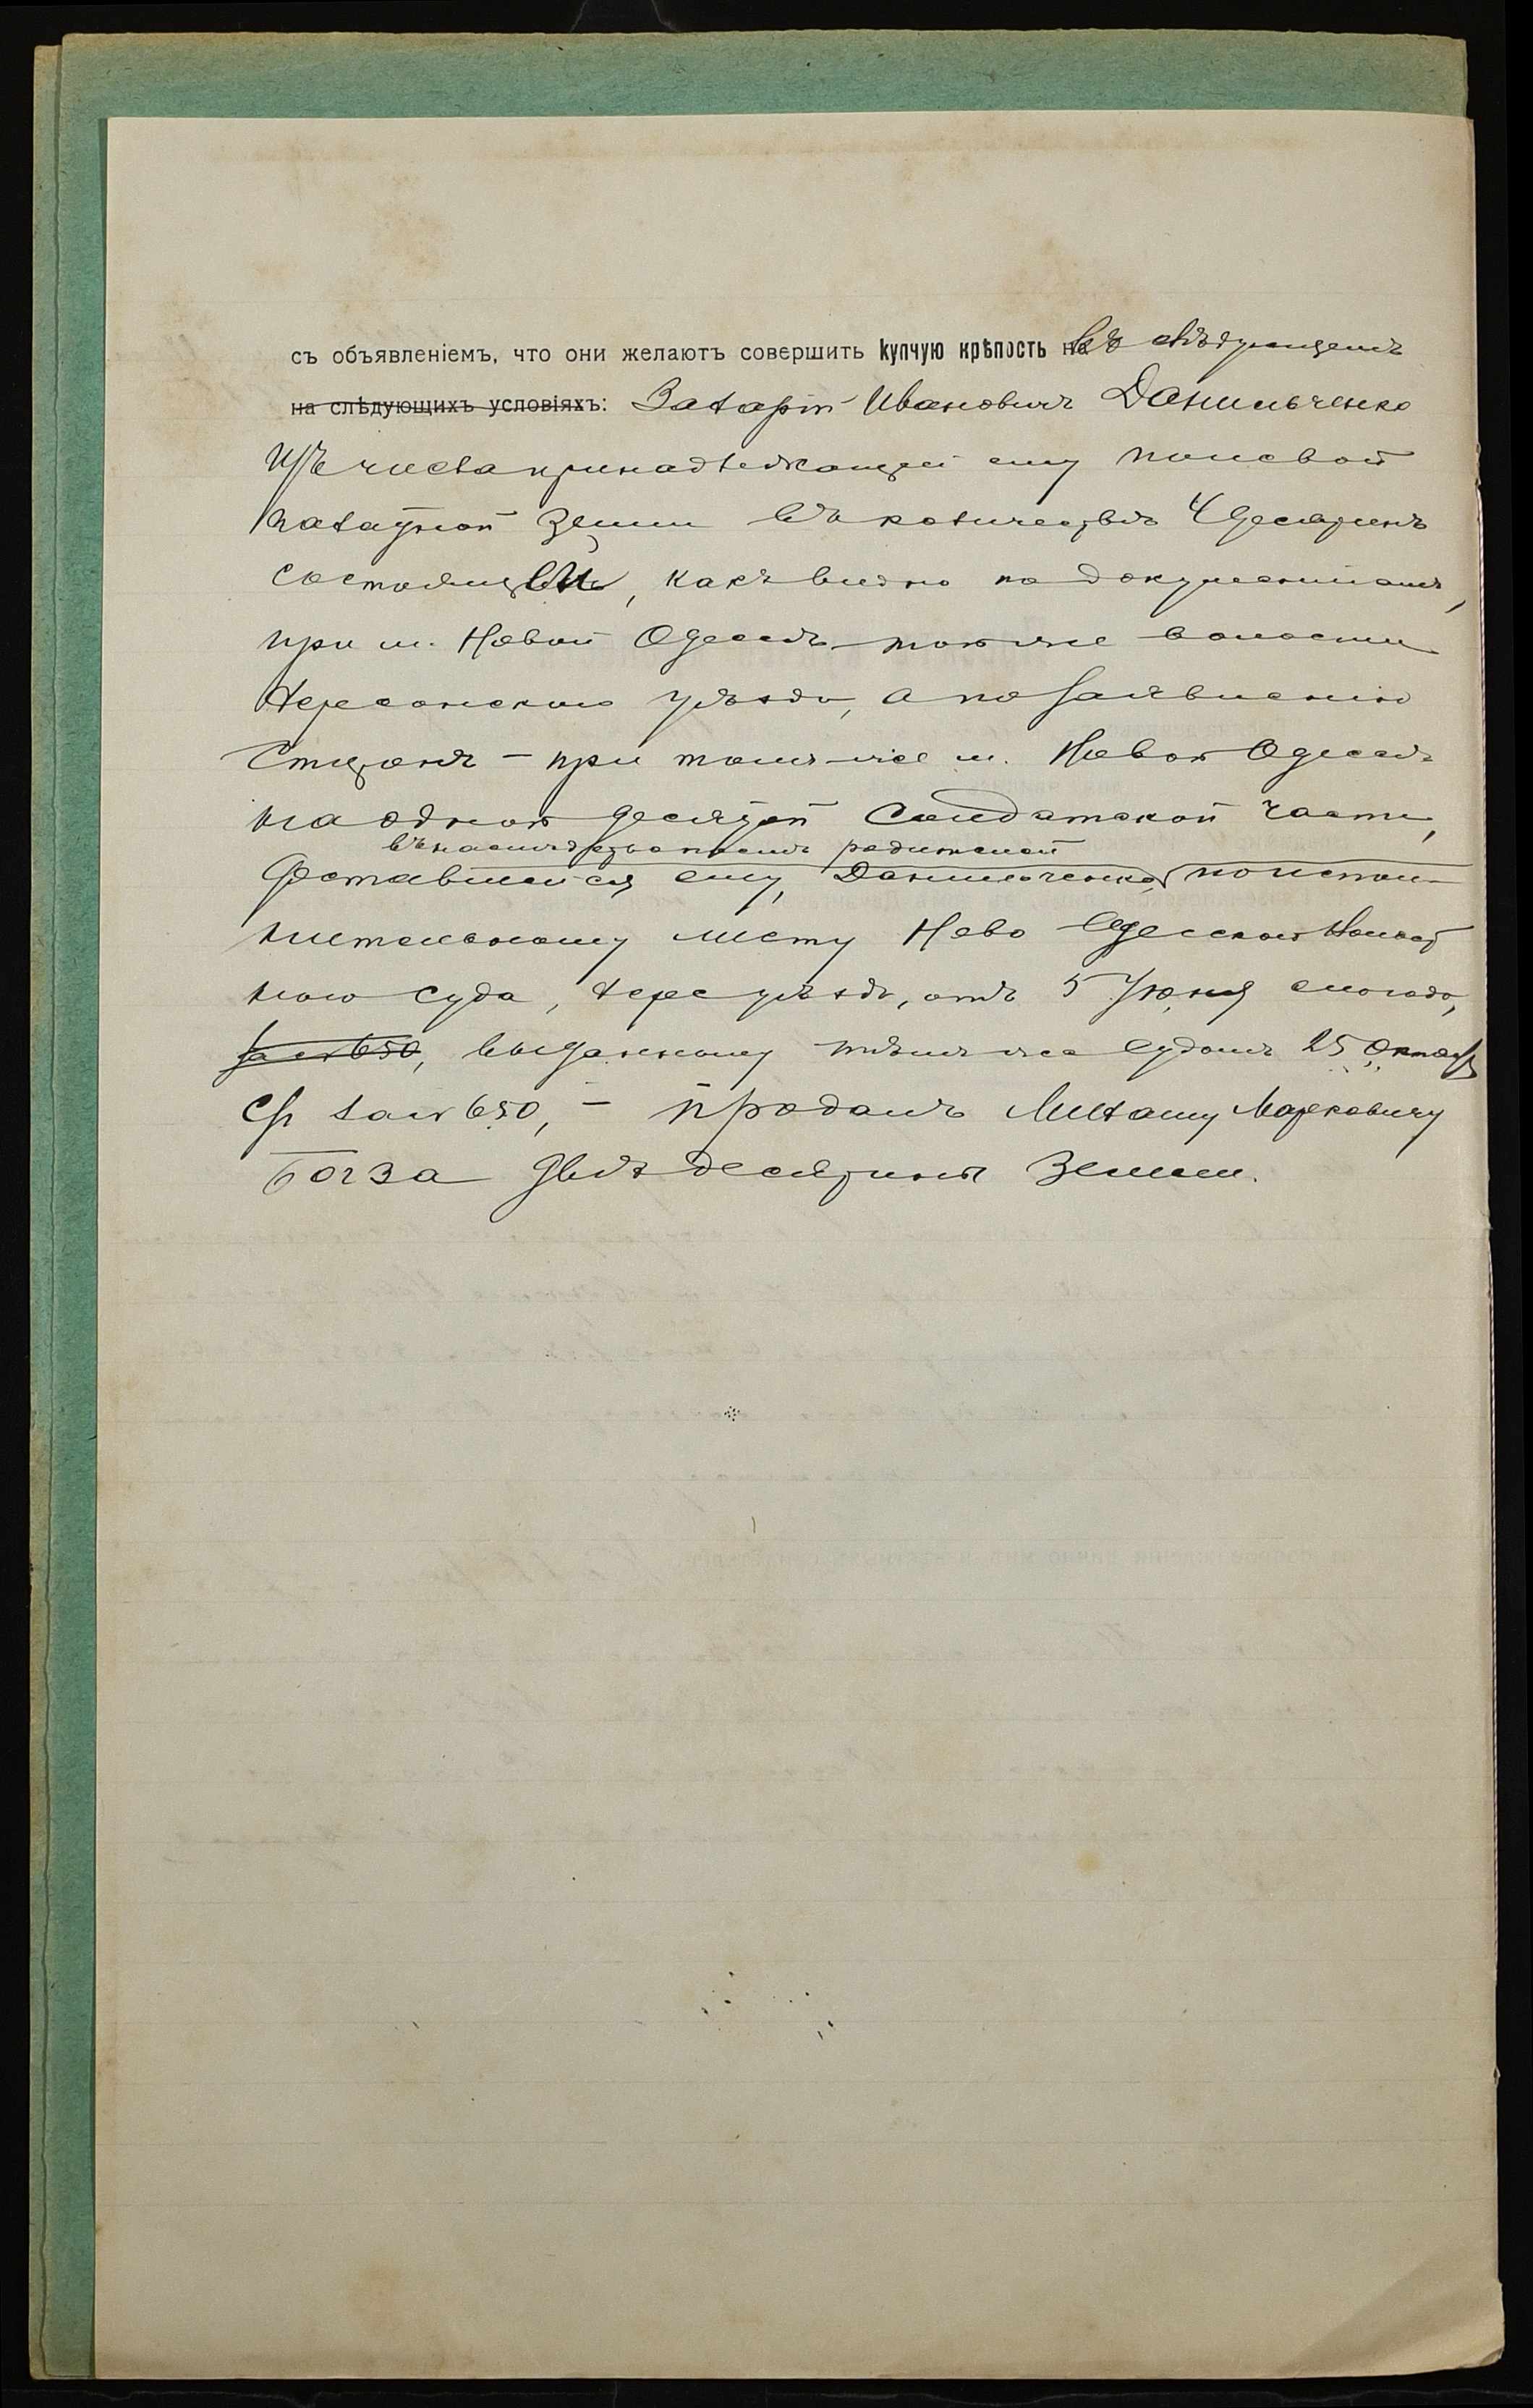 съ объявленіемъ, что они желаютъ совершить купчую крѣпость на въ слѣдующемъ
на слѣдующихъ условіяхъ: Захарій Ивановичъ Данильченко
изъ числа принадлежащей ему полевой
надѣльной земли въ количествѣ 4 десятинъ
состоящей, какъ видно по документамъ,
при м. Новой Одессѣ той же волости
Херсонскаго уѣзда, а по заявленію
сторонъ - при томъ же м. Новой Одессѣ
на одной десятой Солдатской части,
въ наслѣдство послѣ родителей
доставшейся ему, Данильченко, по испол-
нительному листу Ново Одесскаго Волост
ного суда, Херс уѣзда, отъ 5 Іюня сего года,
за № 650, выданному тѣмъ же Судомъ 25 Октяб
с/г за № 650, - продалъ Михаилу Марковичу
Богза двѣ десятины земли.